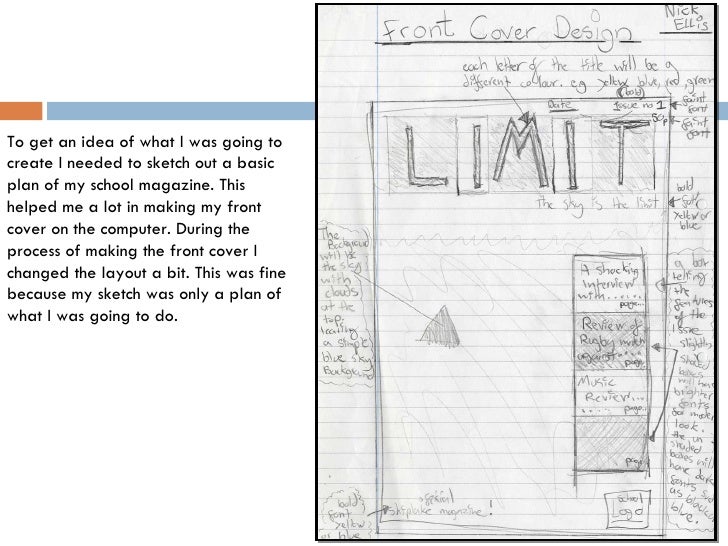 To get an idea of what I was going to
create I needed to sketch out a basic
plan of my school magazine. This
helped me a lot in making my front
cover on the computer. During the
process of making the front cover I
changed the layout a bit. This was fine
because my sketch was only a plan of
what I was going to do.
Nick
Ellis
Front Cover Design
each letter of the title will be a
different colour. e.g yellow, blue, red, green
(bold)
Date
Issue no 1
50p
faint
font
faint
font
LIMIT
the sky is the limit
bold
font
yellow or
blue
The
Background
will be
the sky
with
clouds
at the
top
leading
a simple
blue sky
Background
A shocking
interview
with......
page...
Review of
Rugby match
against....
page..
Music
Review...
.....
page...
page..
a box
telling
the
features
of the
issue
slightly
shaded
boxes
will have
brighter
fonts
for modern
look.
the un
shaded
boxes will
have dark
fonts such
as black or
blue.
bold
font
yellow
or blue
official
skiplake magazine!
School
Logo